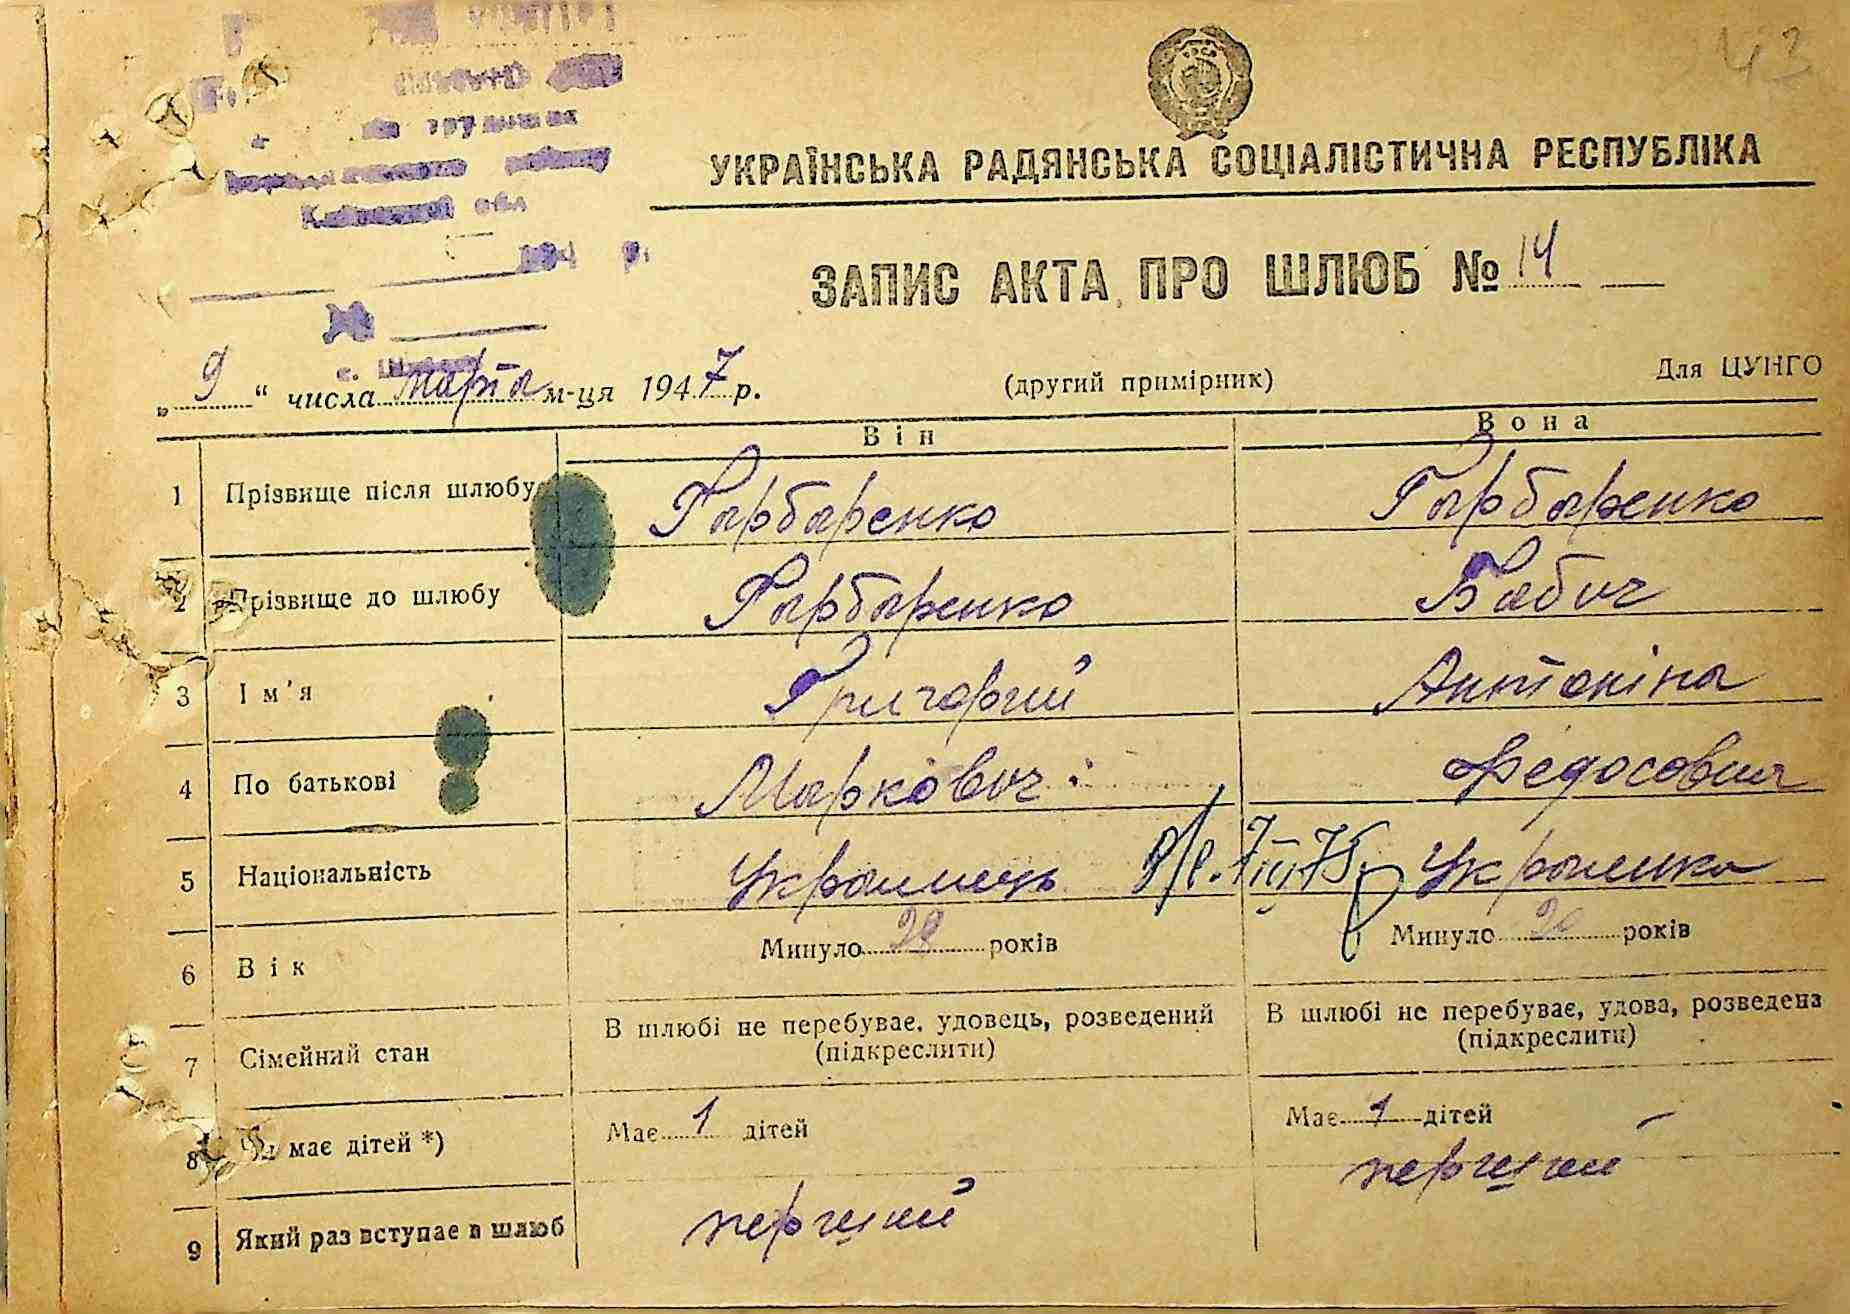 43
районy
Київської обл
194 р.
№
УКРАЇНСЬКА РАДЯНСЬКА СОЦІАЛІСТИЧНА РЕСПУБЛІКА
ЗАПИС АКТА ПРО ШЛЮБ № 14
„ 9 “ числа марта м-ця 1947 р. (другий примірник) Для ЦУНГО
Він Вона
1 Прізвище після шлюбу Гарбаренко Гарбаренко
2 Прізвище до шлюбу Гарбаренко Бабич
3 Ім'я Григорий Антоніна
4 По батькові Маркович Федосовна
5 Національність Украинець Украинка
6 Вік Минуло років Минуло років
7 Сімейний стан В шлюбі не перебуває, удовець, розведений (підкреслити) В шлюбі не перебуває, удова, розведена (підкреслити)
8 має дітей *) Має 1 дітей Має 1 дітей
9 Який раз вступає в шлюб перший перший